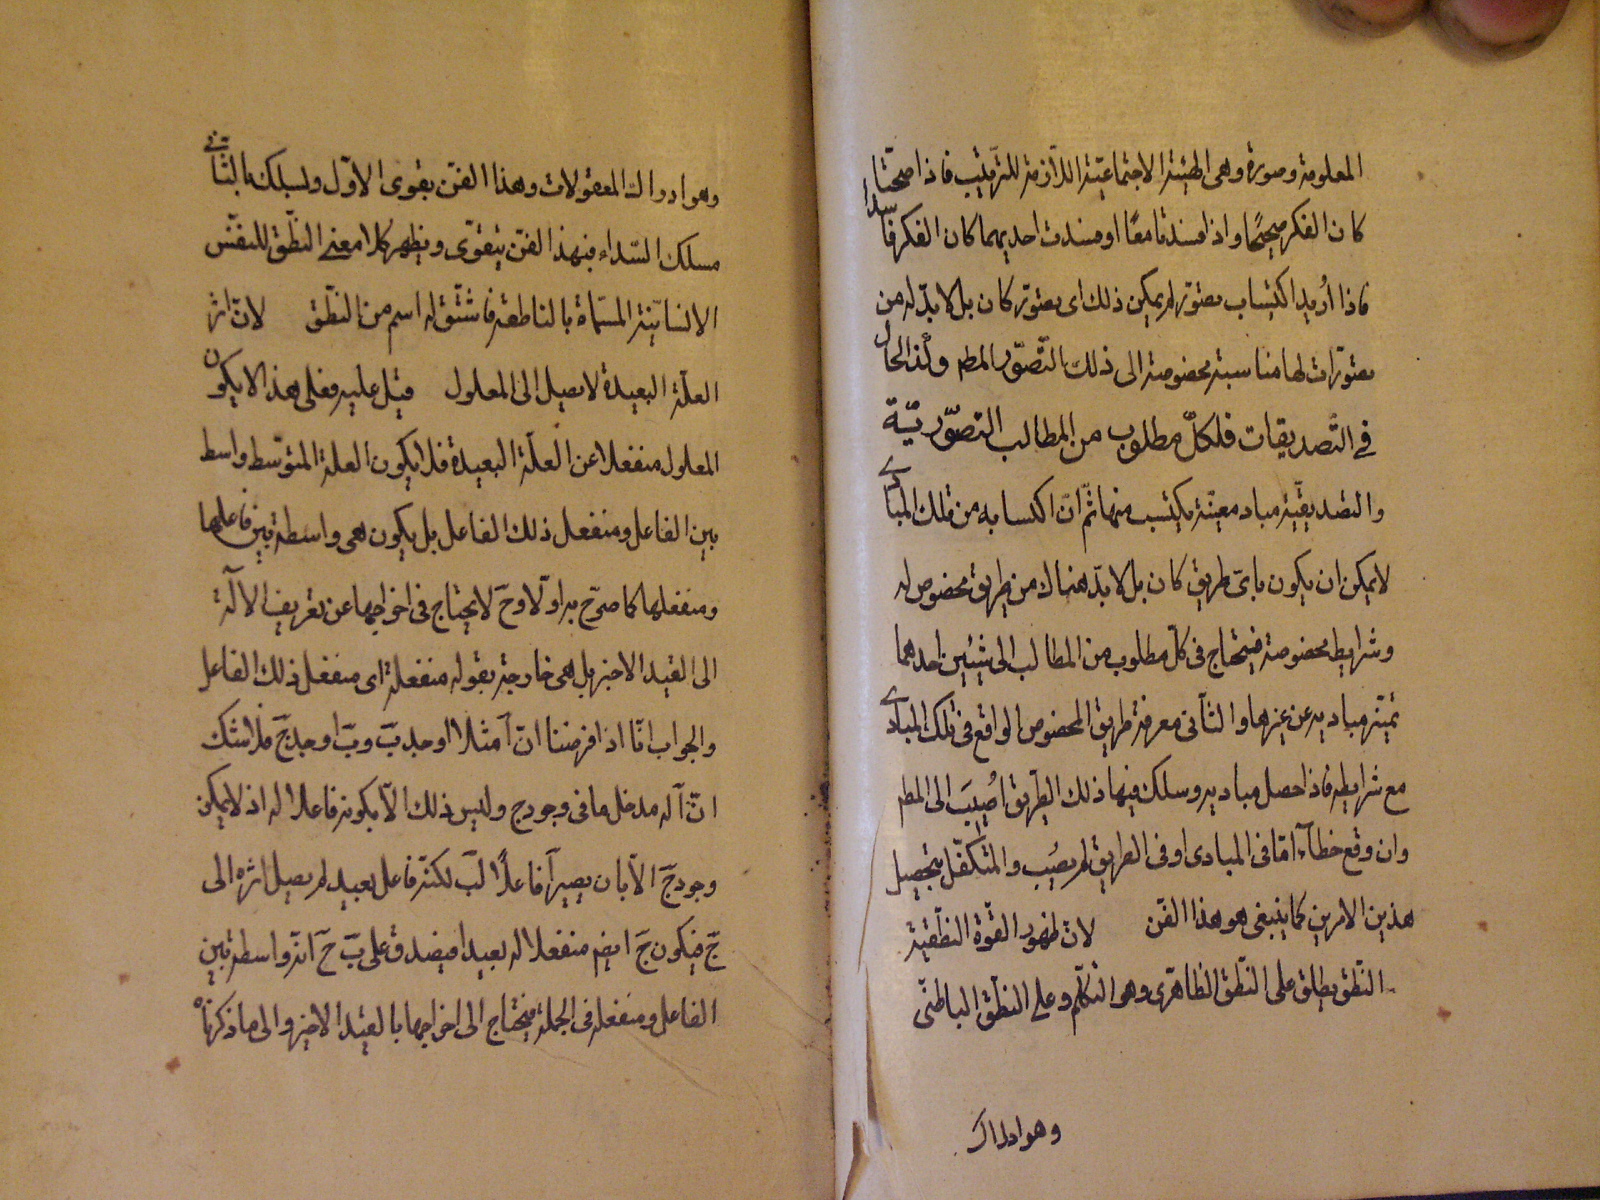 المعلومة وصورة وهى الهيئة الاجتماعية اللازمة للترتيب فاذا صحتا
كان الفكر صحيحا واذا فسدتا معا او فسدت احديهما كان الفكر فاسدا
فاذا اريد اكتساب تصور لم يمكن ذلك اى تصور كان بل لا بد له من
تصورات لها مناسبة مخصوصة الى ذلك التصور المط وكذا الحال
فى التصديقات فلكل مطلوب من المطالب التصورية
والتصديقية مباد معينة يكتسب منها ثم ان اكتسابه من تلك المبادى
لا يمكن ان يكون باى طريق كان بل لا بد هناك من طريق مخصوص له
وشرايط مخصوصة فيحتاج فى كل مطلوب من المطالب الى شيئين احدهما
تميز مباديه عن غيرها والثانى معرفة طريق المخصوص الواقع فى تلك المبادى
مع شرايطه فاذا حصل مباديه وسلك فيها ذلك الطريق اصيب الى المط
وان وقع خطأ اما فى المبادى او فى الطريق لم يصيب والمتكفل بتحصيل
هذين الامرين كما ينبغى هو هذا الفن لان ظهور القوة النطقية
النطق يطلق على النطق الظاهرى وهو التكلم وعلى النطق الباطنى
وهو ادراك
وهو ادراك المعقولات وهذا الفن يقوى الاول ويسلك بالثانى
مسلك السداد فبهذا الفن يتقوى ويظهر كلا معنى النطق للنفس
الانسانية المسماة بالناطقة فاشتق له اسم من النطق لان اثر
العلة البعيدة لا يصل الى المعلول قيل عليه فعلى هذا لا يكون
المعلول منفعلا عن العلة البعيدة فلا يكون العلة المتوسط واسط
بين الفاعل ومنفعل ذلك الفاعل بل يكون هى واسطة بين فاعلها
ومنفعلها كما صرح به اولا وح لا يحتاج فى اخراجها عن تعريف الالة
الى القيد الاخير بل هى خارجة بقوله منفعلة اى منفعل ذلك الفاعل
والجواب انا اذا فرضنا ان آ مثلا اوجد ب وب اوجد ج فلا شك
ان آ له مدخل ما فى وجود ج وليس ذلك الا بكونه فاعلا له اذ لا يمكن
وجود ج الا بان يصير آ فاعلا لب لكنه فاعل بعيد لم يصل اثره الى
ج فيكون ج ايضا منفعلا له بعيدا فيصدق على ب ح انه واسطة بين
الفاعل ومنفعله فى الجملة فيحتاج الى اخراجها بالقيد الاخير والى ما ذكرناه